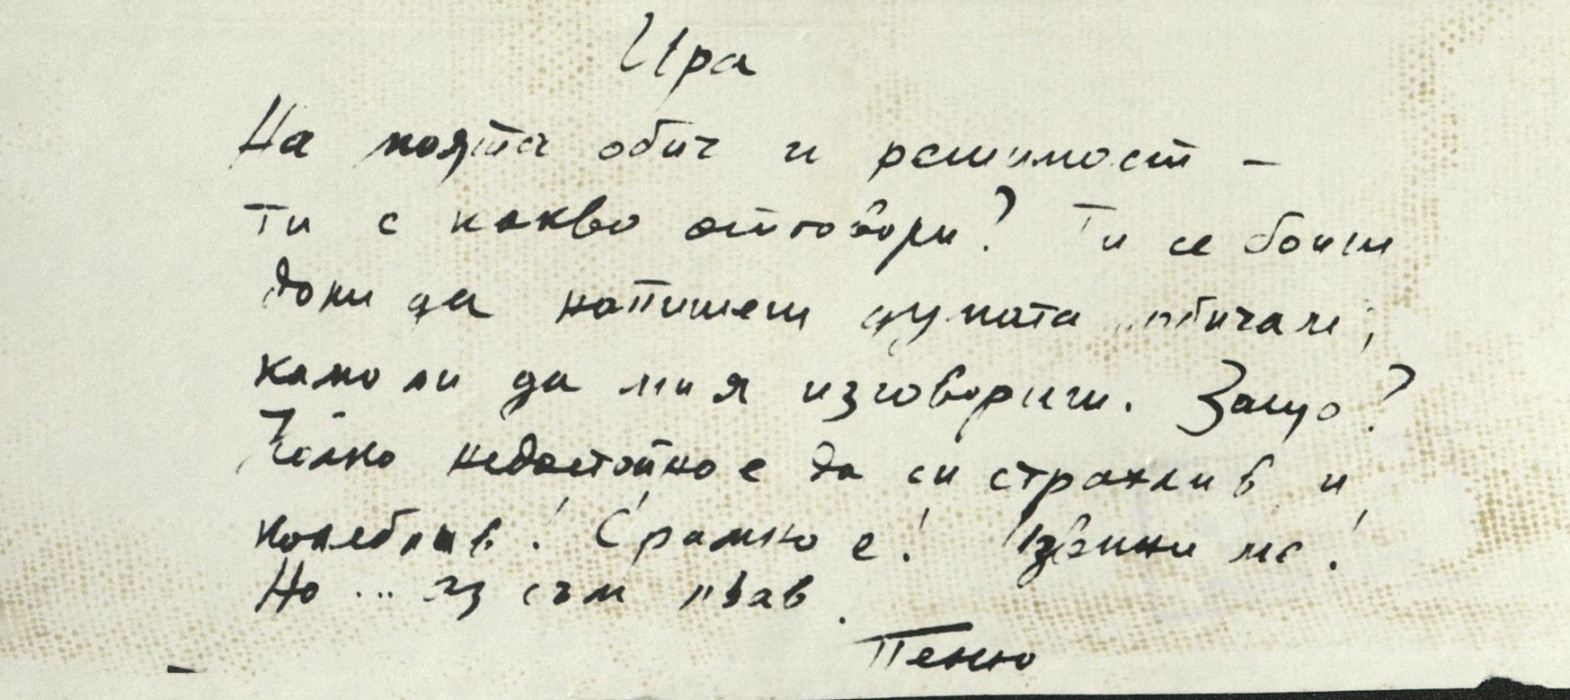 Ира
На моята обич и решимост –
ти с какво отговори? Ти се боиш
дори да напишеш думата „обичам",
камо ли да ми я изговориш. Защо?
Толко недостойно е да си страхлив и
колеблив! Срамно е! Извини ме!
Но ... аз съм прав.
Пеньо